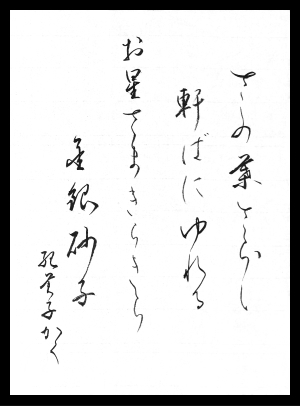 さゝの葉さら〳〵
軒ばにゆれる
お星さまきらきら
金銀砂子
子かく